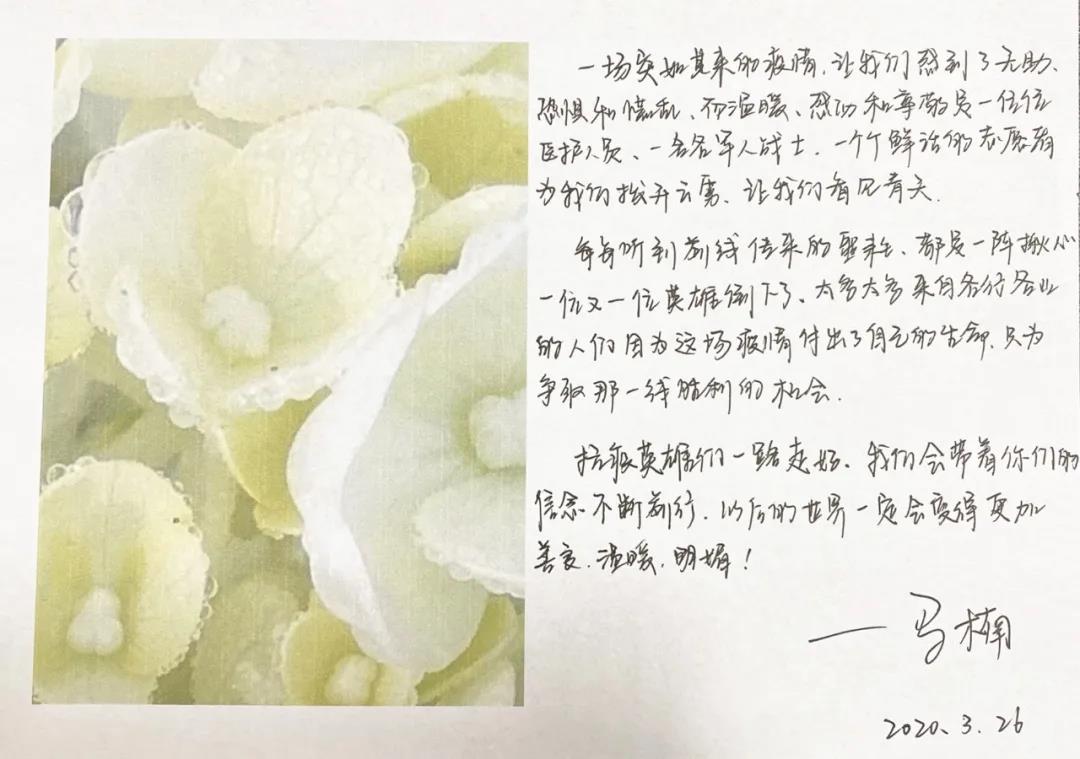 一场突如其来的疫情，让我们感到了无助、
恐惧和慌乱，而温暖、感动和尊敬是一位位
医护人员、一名名军人战士、一个个鲜活的志愿者
为我们拨开云雾、让我们看见青天.
每每听到前线传来的噩耗、都是一阵揪心
一位又一位英雄倒下了、太多太多来自各行各业
的人们因为这场疫情付出了自己的生命，只为
争取那一线胜利的机会.
抗疫英雄们一路走好、我们会带着你们的
信念不断前行，以后的世界一定会变得更加
善良、温暖、明媚！
——马楠
2020、3.26